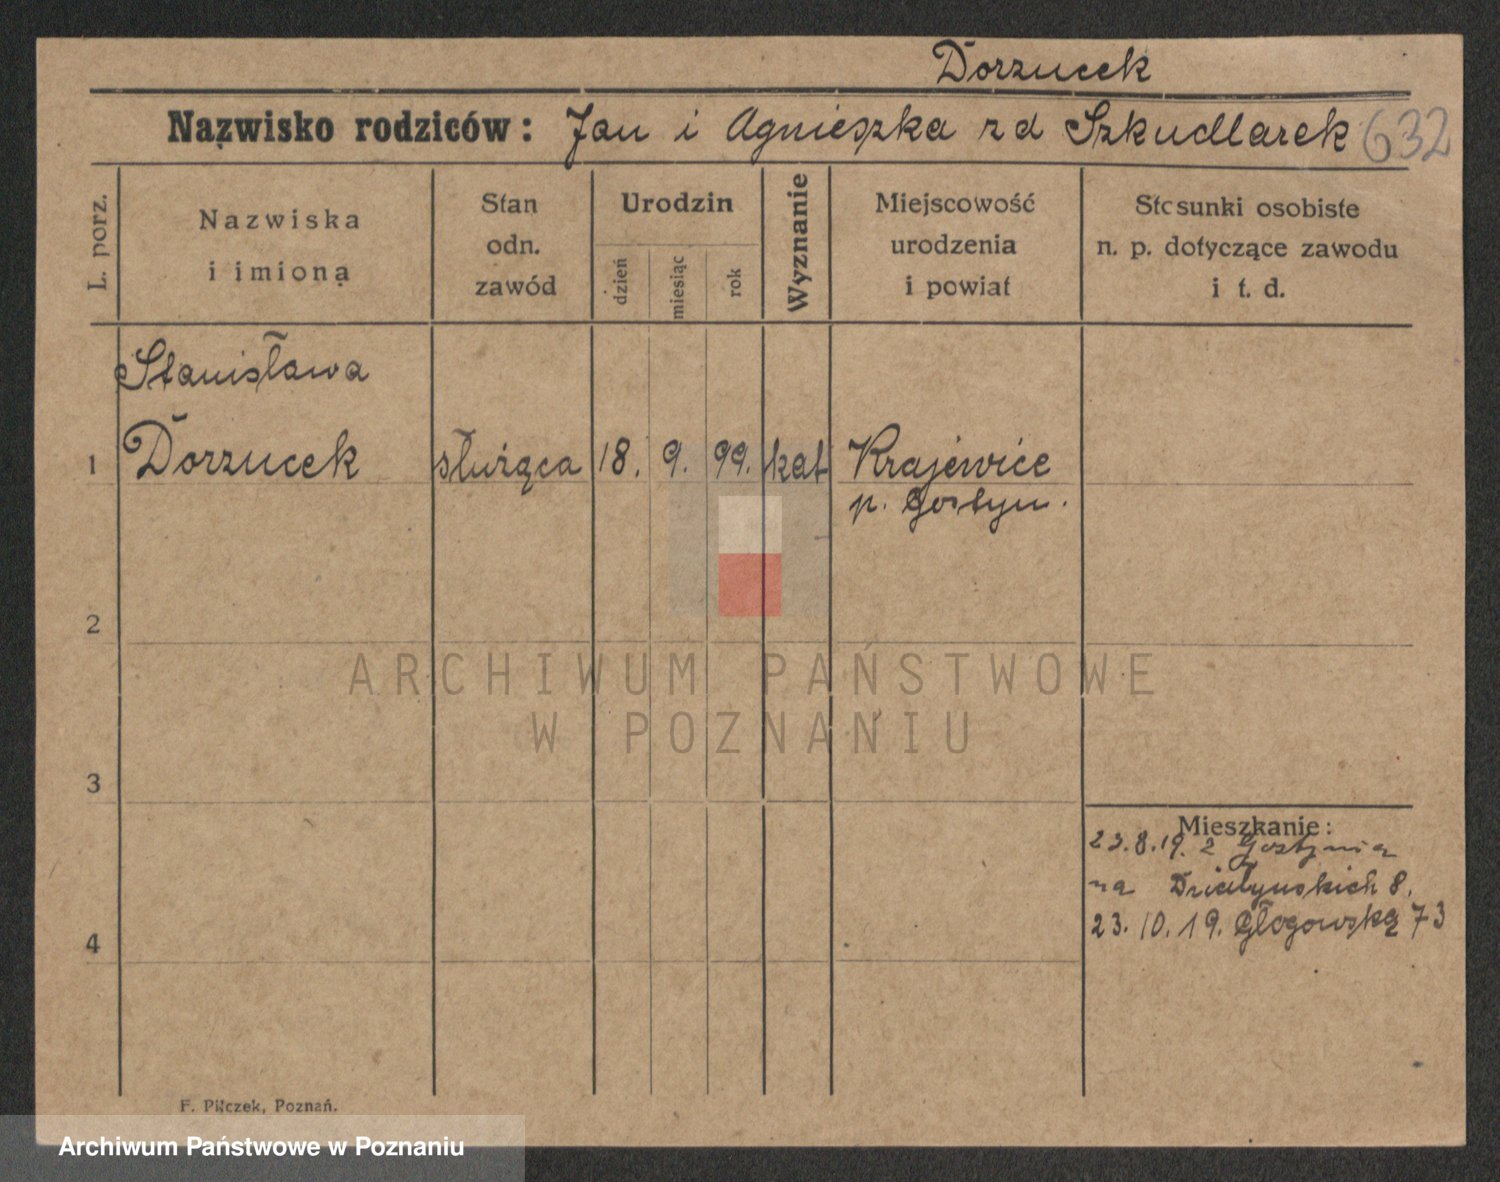 Dorzucek
Nazwisko rodziców: Jan i Agnieszka zd Szkudlarek 632
L. porz.
Nazwiska
i imiona
Stan
odn.
zawód
Urodzin
dzień
miesiąc
rok
Wyznanie
Miejscowość
urodzenia
i powiat
Stosunki osobiste
n. p. dotyczące zawodu
i t. d.
Stanisława
1 Dorzucek służąca 18. 9. 99. kat Krajewice
p. Gostyń.
2
3
4
ARCHIWUM PAŃSTWOWE
W POZNANIU
Mieszkanie:
23.8.19. z Gostynia
na Działyńskich 8.
23.10.19. Głogowska 73
F. Pilczek, Poznań.
Archiwum Państwowe w Poznaniu